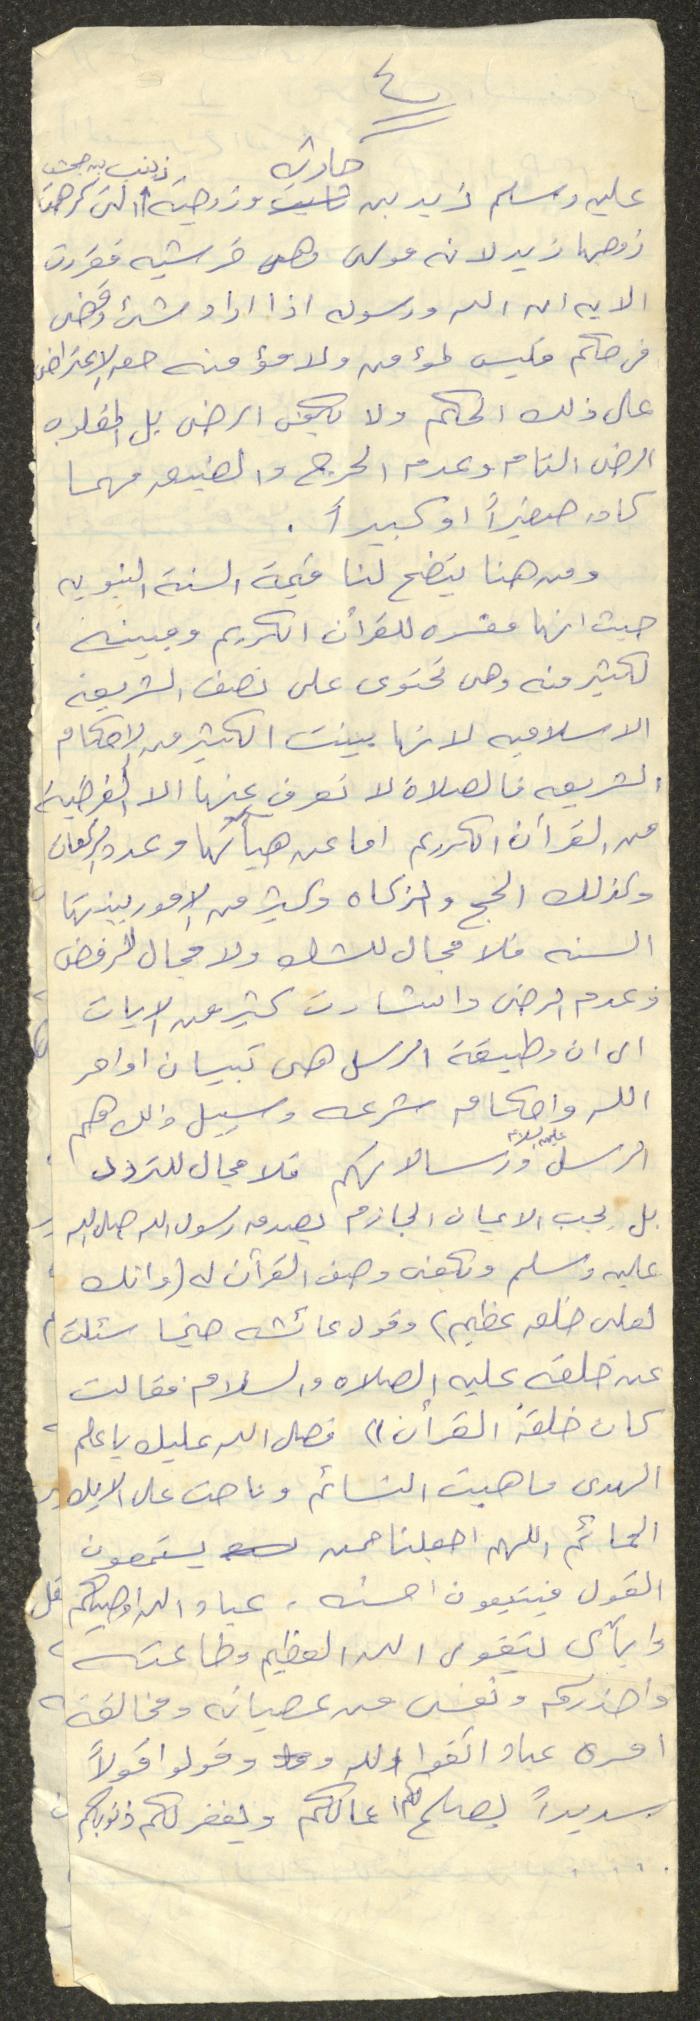 ٤
حارثه
زينب بنت جحش
عليه وسلم زيد بن ثابت وزوجته التى كرهها
زوجها زيد لانه مولى وهى قرشيه فقررت
الايه ان الله ورسوله اذا اراد شئ وقضى
فى حكم فليس لمؤمن ولا مؤمنه حق الاعتراض
على ذلك الحكم ولا يكفى الرضى بل المطلوب
الرضى التام وعدم الحرج والضيق مهما
كان صغيراً او كبيراً .
ومن هنا يتضح لنا قيمة السنة النبويه
حيث انها مفسره للقرآن الكريم ومبينه
لكثير منه وهى تحتوى على نصف الشريعه
الاسلاميه لانها بينت الكثير من الاحكام
الشريعه فالصلاة لا نعرف عنها الا الفرضية
من القرآن الكريم اما عن هيأتها وعدد الركعات
وكذلك الحج والزكاه وكثير من الامور بينتها
السنه فلا مجال للشك ولا مجال للرفض
وعدم الرضى واشارت كثير من الايات
الى ان وظيفة الرسل هى تبيان اوامر
الله واحكام شرعه وسبيل ذلك هم
الرسل عليهم السلام ورسالاتهم فلا مجال للتردد
بل يجب الايمان الجازم بصدق رسول الله صلى الله
عليه وسلم ويكفى وصف القرآن له (وانك
لعلى خلق عظيم) وقول عائشه حينما سئلت
عن خلقه عليه الصلاه والسلام فقالت
كان خلقه القرآن )) فصلى الله عليك يا علم
الهدى ما هبت النسائم وناحت على الايك
الحمائم اللهم اجعلنا ممن يستمعون
القول فيتبعون احسنه ، عباد الله اوصيكم
وايأى بتقوى الله العظيم وطاعته
واحذركم ونفسى من عصيانه ومخالفة
امره عباد اتقوا الله وقولوا قولاً
سديداً يصلح لكم اعمالكم ويغفر لكم ذنوبكم
. . . .